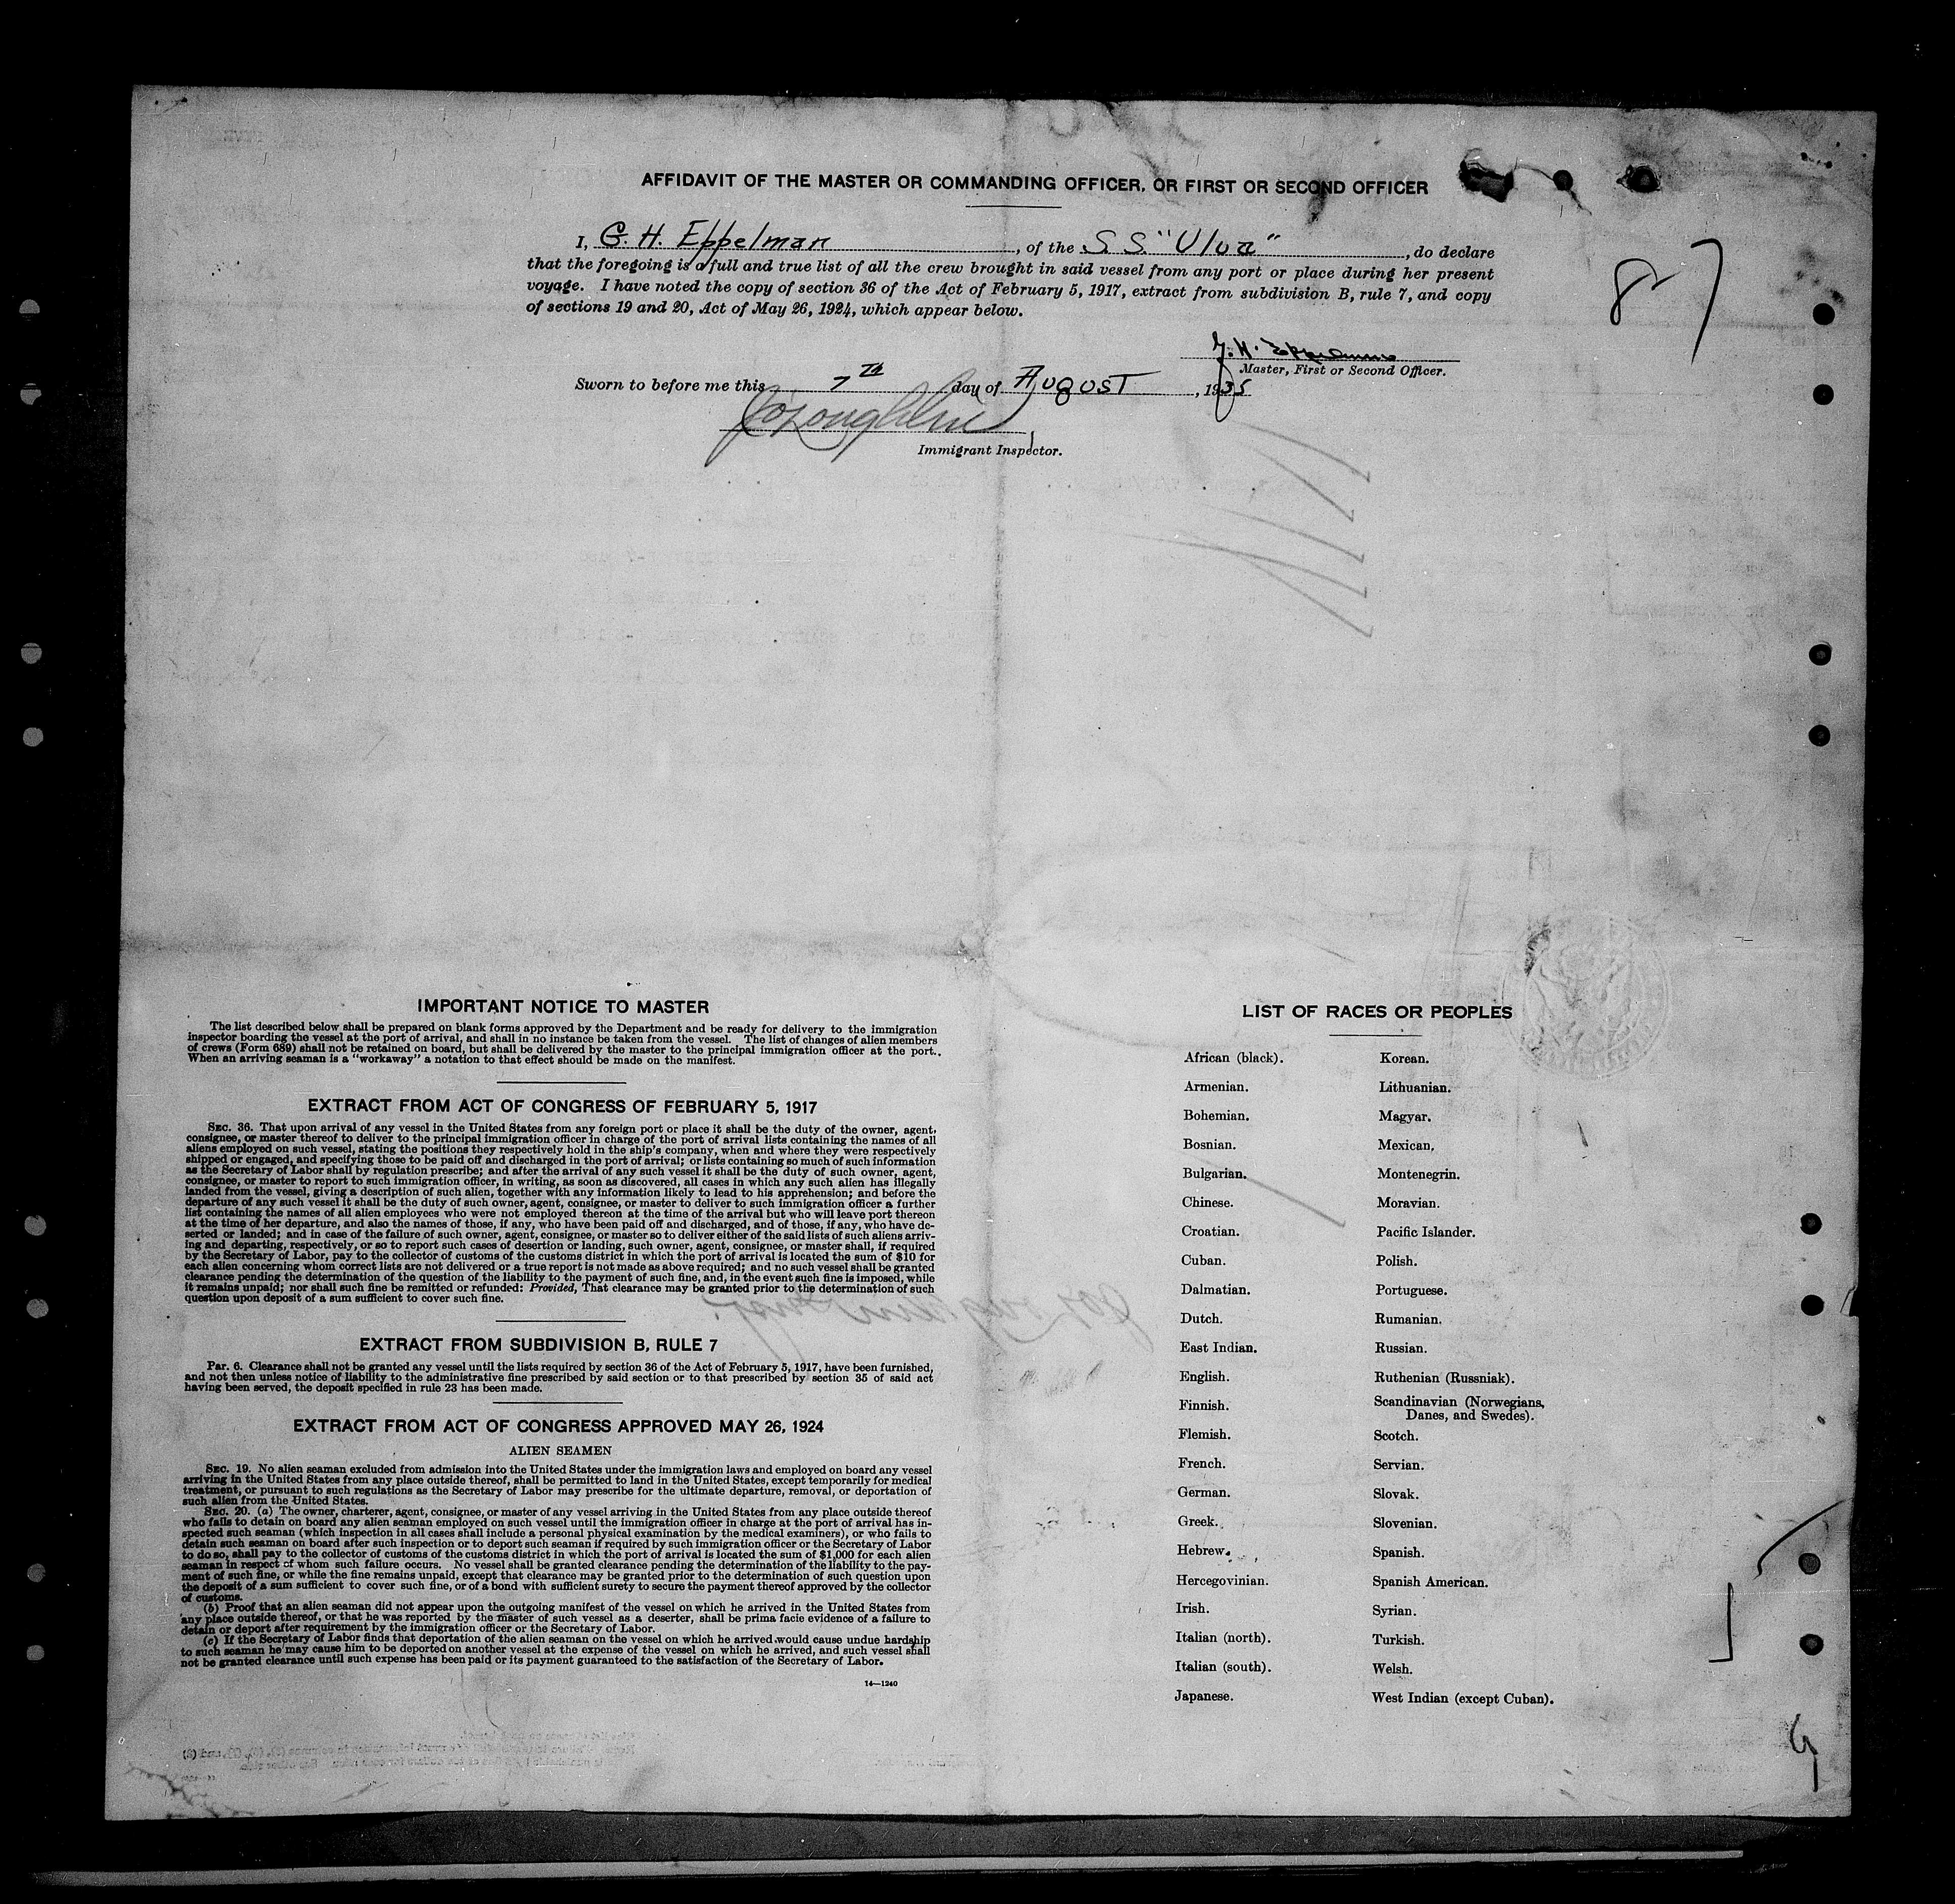 AFFIDAVIT OF THE MASTER OR COMMANDING OFFICER, OR FIRST OR SECOND OFFICER
I, G. H. Eppelman, of the S.S. "Ulua", do declare
that the foregoing is a full and true list of all the crew brought in said vessel from any port or place during her present
voyage. I have noted the copy of section 36 of the Act of February 5, 1917, extract from subdivision B, rule 7, and copy
of sections 19 and 20, Act of May 26, 1924, which appear below.
87
G. H. Eppelman
Master, First or Second Officer.
Sworn to before me this 7th day of August, 1935
Immigrant Inspector.
IMPORTANT NOTICE TO MASTER
The list described below shall be prepared on blank forms approved by the Department and be ready for delivery to the immigration
inspector boarding the vessel at the port of arrival, and shall in no instance be taken from the vessel. The list of changes of alien members
of crews (Form 689) shall not be retained on board, but shall be delivered by the master to the principal immigration officer at the port.
When an arriving seaman is a "workaway" a notation to that effect should be made on the manifest.
EXTRACT FROM ACT OF CONGRESS OF FEBRUARY 5, 1917
SEC. 36. That upon arrival of any vessel in the United States from any foreign port or place it shall be the duty of the owner, agent,
consignee, or master thereof to deliver to the principal immigration officer in charge of the port of arrival lists containing the names of all
aliens employed on such vessel, stating the positions they respectively hold in the ship's company, when and where they were respectively
shipped or engaged, and specifying those to be paid off and discharged in the port of arrival; or lists containing so much of such information
as the Secretary of Labor shall by regulation prescribe; and after the arrival of any such vessel it shall be the duty of such owner, agent,
consignee, or master to report to such immigration officer, in writing, as soon as discovered, all cases in which any such alien has illegally
landed from the vessel, giving a description of such alien, together with any information likely to lead to his apprehension; and before the
departure of any such vessel it shall be the duty of such owner, agent, consignee, or master to deliver to such immigration officer a further
list containing the names of all alien employees who were not employed thereon at the time of the arrival but who will leave port thereon
at the time of her departure, and also the names of those, if any, who have been paid off and discharged, and of those, if any, who have de-
serted or landed; and in case of the failure of such owner, agent, consignee, or master so to deliver either of the said lists of such aliens arriv-
ing and departing, respectively, or so to report such cases of desertion or landing, such owner, agent, consignee, or master shall, if required
by the Secretary of Labor, pay to the collector of customs of the customs district in which the port of arrival is located the sum of $10 for
each alien concerning whom correct lists are not delivered or a true report is not made as above required; and no such vessel shall be granted
clearance pending the determination of the question of the liability to the payment of such fine, and, in the event such fine is imposed, while
it remains unpaid; nor shall such fine be remitted or refunded: Provided, That clearance may be granted prior to the determination of such
question upon deposit of a sum sufficient to cover such fine.
EXTRACT FROM SUBDIVISION B, RULE 7
Par. 6. Clearance shall not be granted any vessel until the lists required by section 36 of the Act of February 5, 1917, have been furnished,
and not then unless notice of liability to the administrative fine prescribed by said section or to that prescribed by section 35 of said act
having been served, the deposit specified in rule 23 has been made.
EXTRACT FROM ACT OF CONGRESS APPROVED MAY 26, 1924
ALIEN SEAMEN
SEC. 19. No alien seaman excluded from admission into the United States under the immigration laws and employed on board any vessel
arriving in the United States from any place outside thereof, shall be permitted to land in the United States, except temporarily for medical
treatment, or pursuant to such regulations as the Secretary of Labor may prescribe for the ultimate departure, removal, or deportation of
such alien from the United States.
SEC. 20. (a) The owner, charterer, agent, consignee, or master of any vessel arriving in the United States from any place outside thereof
who fails to detain on board any alien seaman employed on such vessel until the immigration officer in charge at the port of arrival has in-
spected such seaman (which inspection in all cases shall include a personal physical examination by the medical examiners), or who fails to
detain such seaman on board after such inspection or to deport such seaman if required by such immigration officer or the Secretary of Labor
to do so, shall pay to the collector of customs of the customs district in which the port of arrival is located the sum of $1,000 for each alien
seaman in respect of whom such failure occurs. No vessel shall be granted clearance pending the determination of the liability to the pay-
ment of such fine, or while the fine remains unpaid, except that clearance may be granted prior to the determination of such question upon
the deposit of a sum sufficient to cover such fine, or of a bond with sufficient surety to secure the payment thereof approved by the collector
of customs.
(b) Proof that an alien seaman did not appear upon the outgoing manifest of the vessel on which he arrived in the United States from
any place outside thereof, or that he was reported by the master of such vessel as a deserter, shall be prima facie evidence of a failure to
detain or deport after requirement by the immigration officer or the Secretary of Labor.
(c) If the Secretary of Labor finds that deportation of the alien seaman on the vessel on which he arrived would cause undue hardship
to such seaman he may cause him to be deported on another vessel at the expense of the vessel on which he arrived, and such vessel shall
not be granted clearance until such expense has been paid or its payment guaranteed to the satisfaction of the Secretary of Labor.
14—1240
LIST OF RACES OR PEOPLES
African (black).
Armenian.
Bohemian.
Bosnian.
Bulgarian.
Chinese.
Croatian.
Cuban.
Dalmatian.
Dutch.
East Indian.
English.
Finnish.
Flemish.
French.
German.
Greek.
Hebrew.
Hercegovinian.
Irish.
Italian (north).
Italian (south).
Japanese.
Korean.
Lithuanian.
Magyar.
Mexican.
Montenegrin.
Moravian.
Pacific Islander.
Polish.
Portuguese.
Rumanian.
Russian.
Ruthenian (Russniak).
Scandinavian (Norwegians,
Danes, and Swedes).
Scotch.
Servian.
Slovak.
Slovenian.
Spanish.
Spanish American.
Syrian.
Turkish.
Welsh.
West Indian (except Cuban).